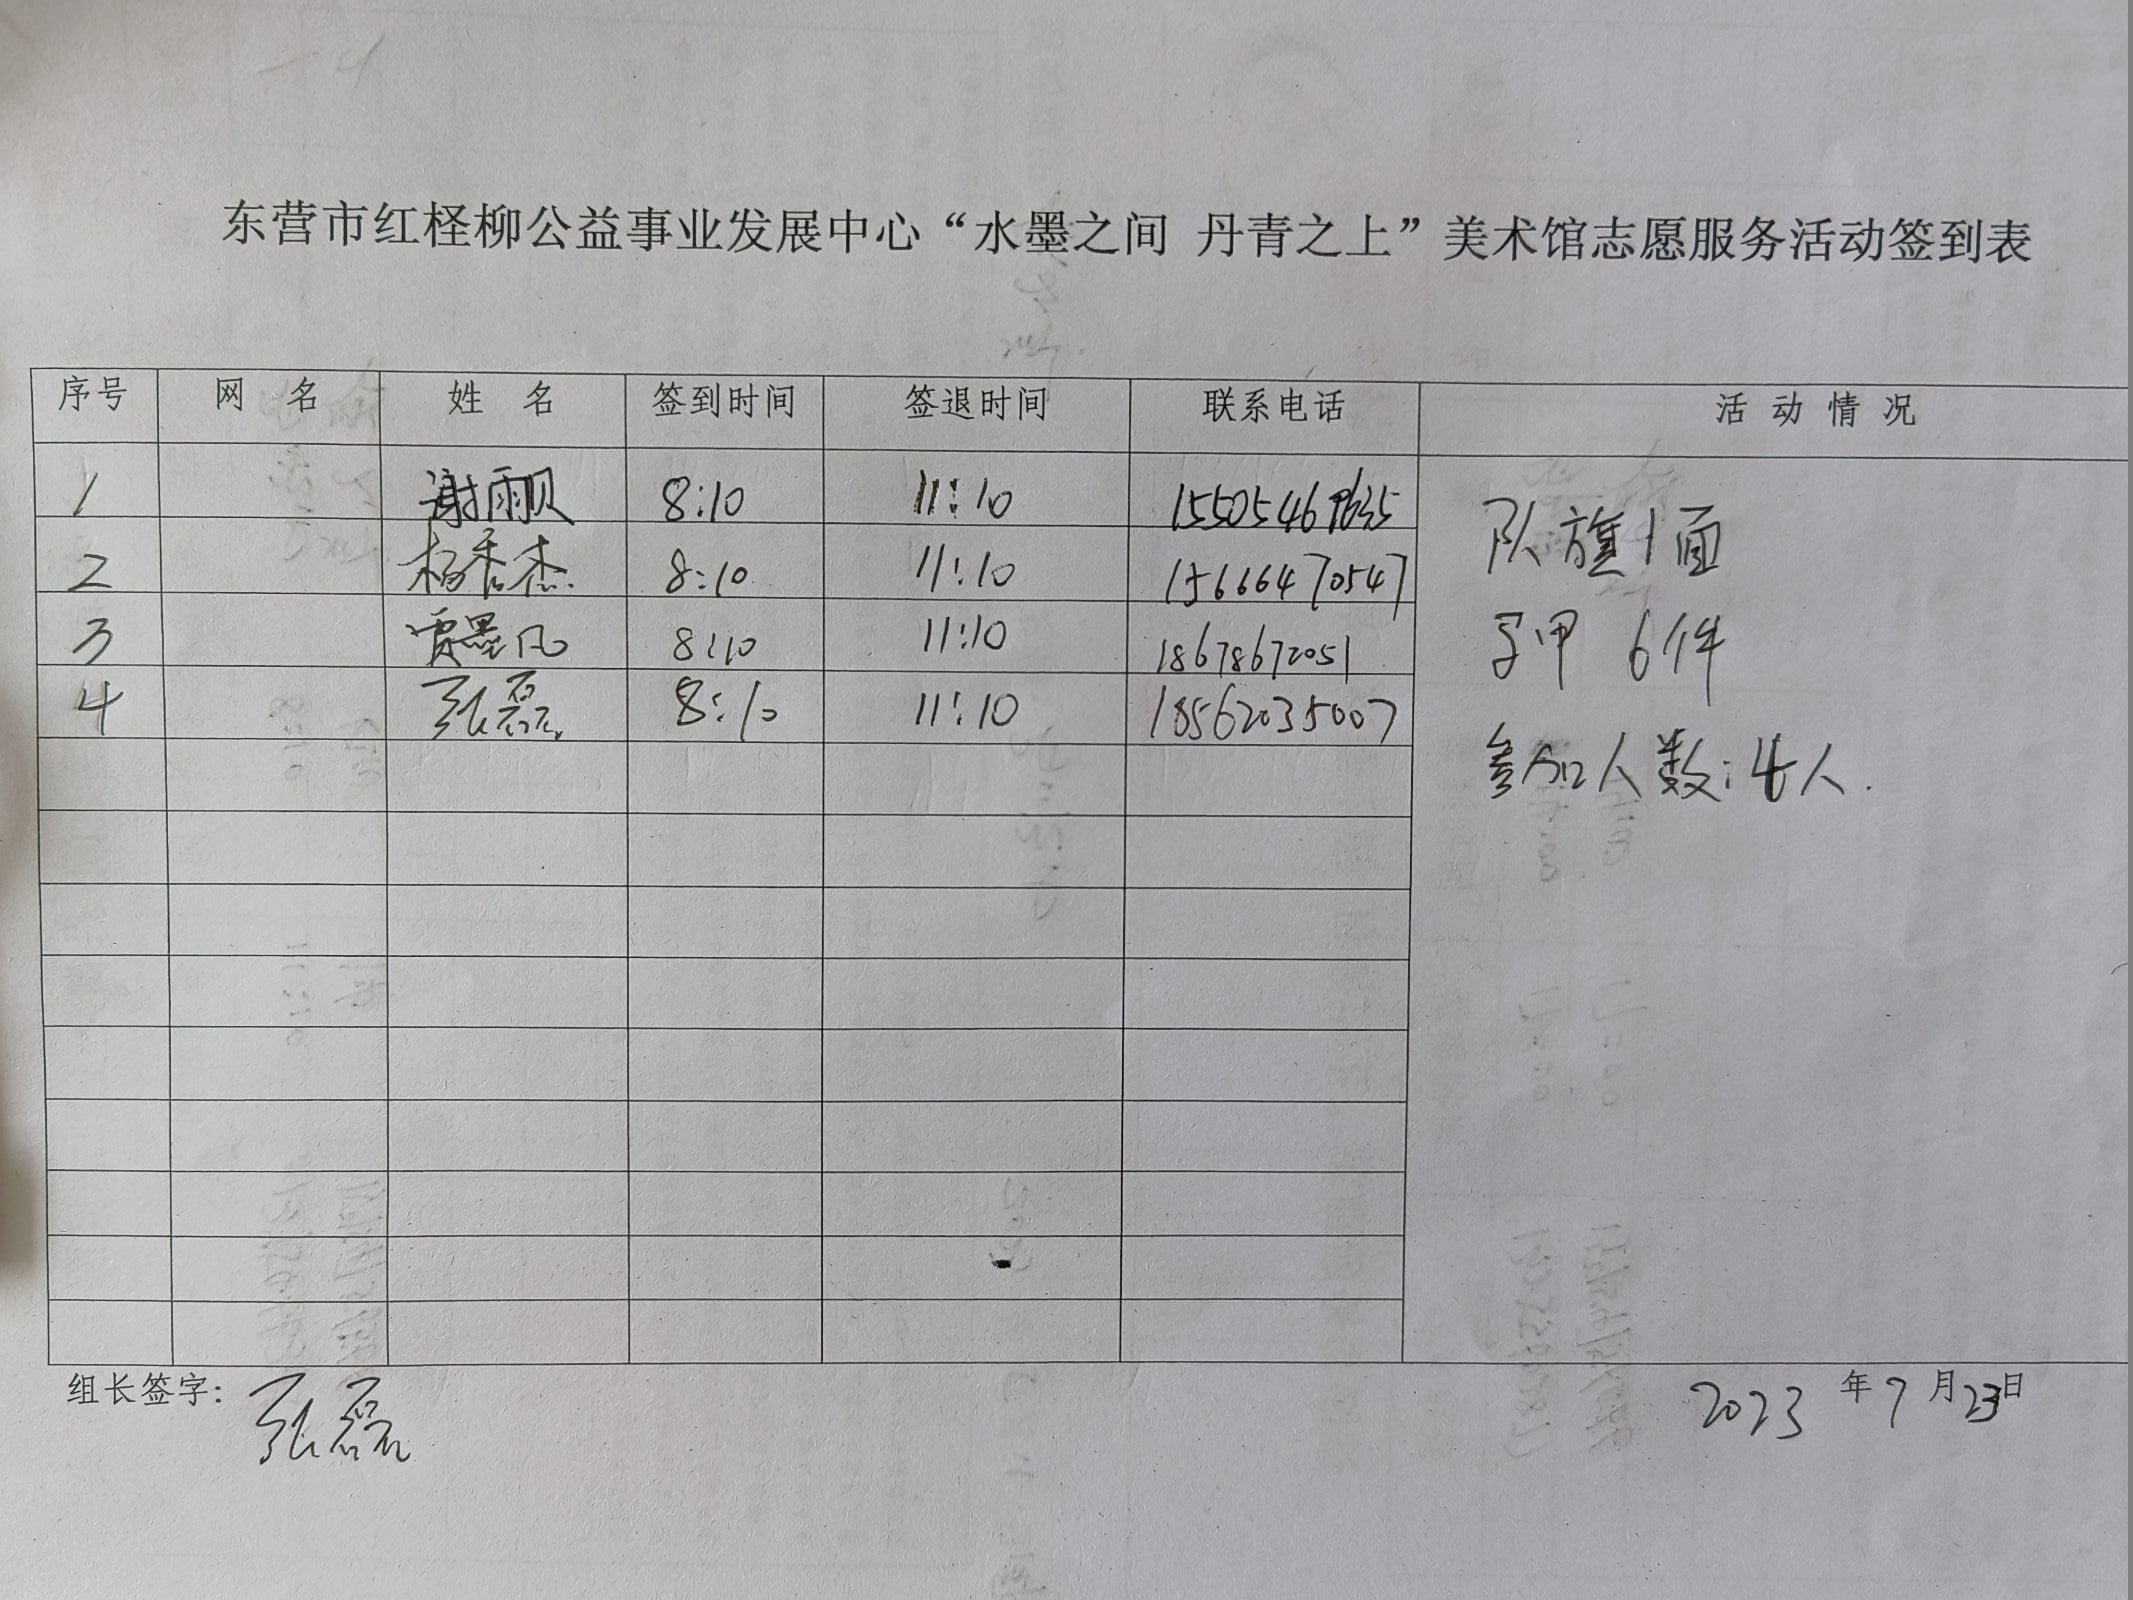 东营市红柽柳公益事业发展中心“水墨之间 丹青之上”美术馆志愿服务活动签到表
序号 网 名 姓 名 签到时间 签退时间 联系电话 活动情况
1 谢雨贝 8:10 11:10
2 杨香杰 8:10 11:10 15666470547
3 贾墨凡 8:10 11:10 18678672051
4 张磊 8:10 11:10 18562035007
队旗1面
马甲 6件
参加人数:4人.
组长签字: 张磊 2023 年 7 月 23 日